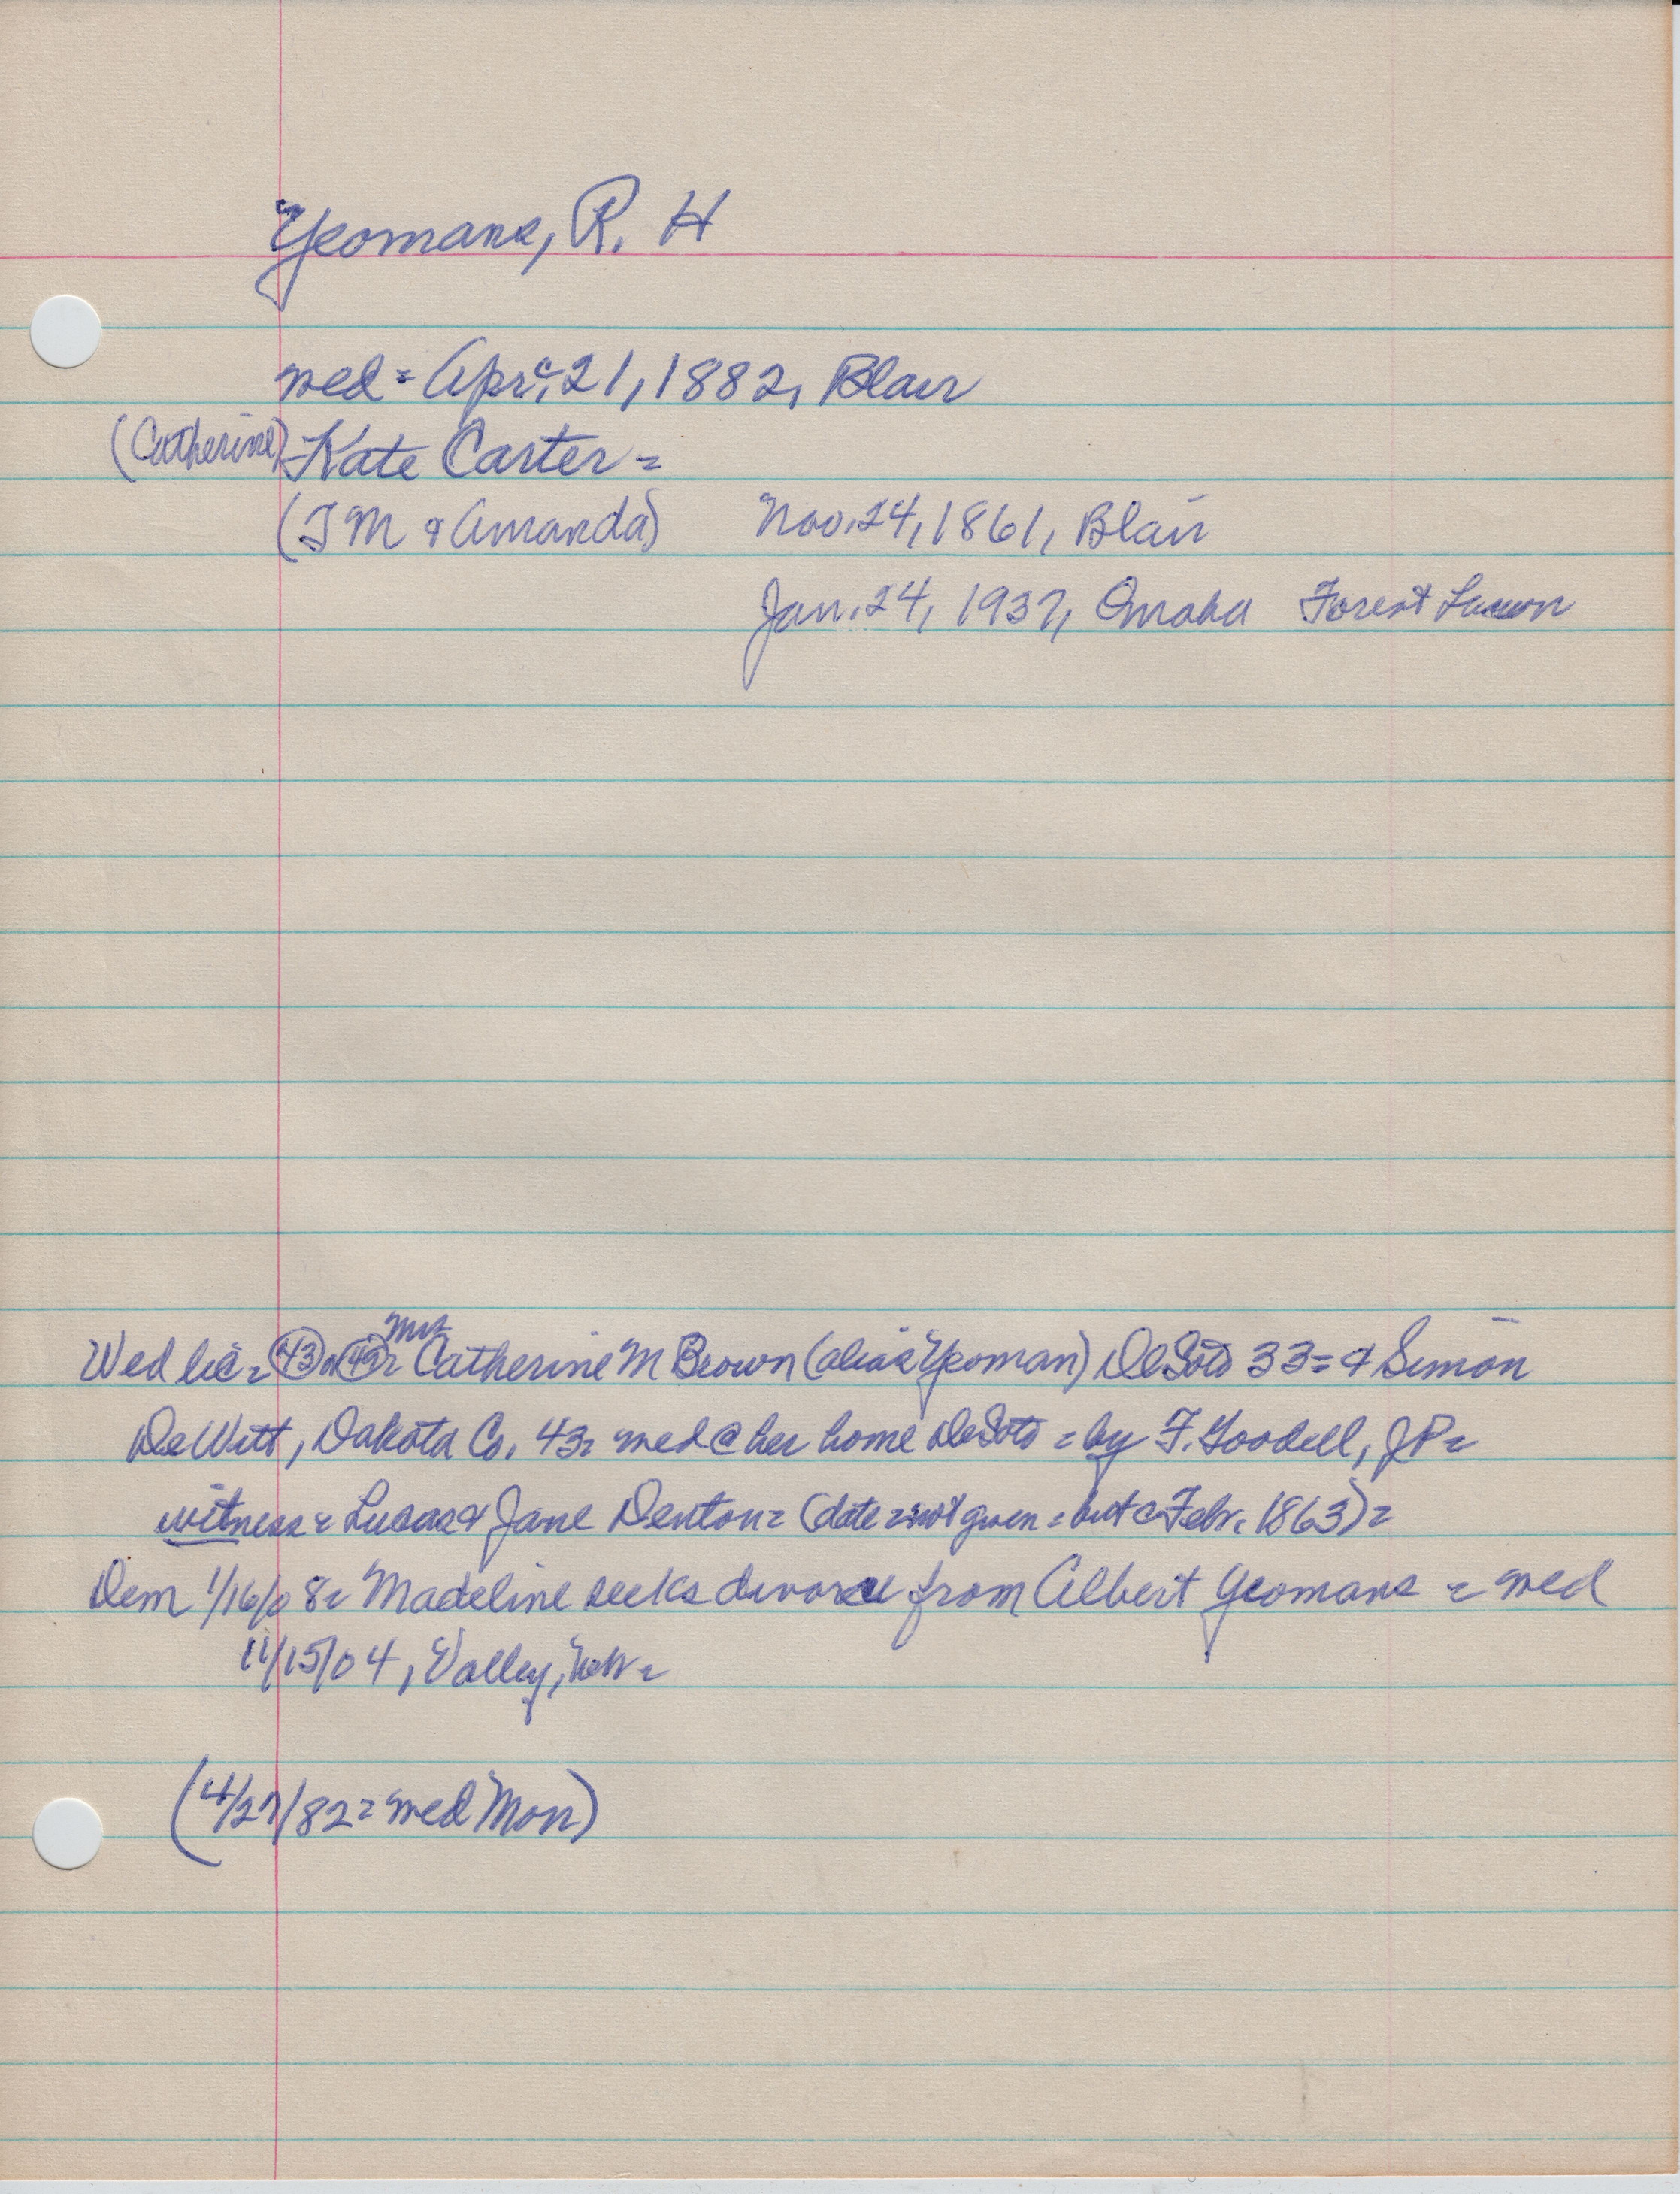 Yeomans, R. H
wed = Apr. 21, 1882, Blair
(Catherine) Kate Carter =
(J M & Amanda) Nov. 24, 1861, Blair
Jan. 24, 1937, Omaha Forest Lawn
Mrs
Wed lic = 43 or 42 = Catherine M Brown (alias Yeoman) DeSoto 33 = & Simon
DeWitt, Dakota Co. 43 = wed @ her home DeSoto = by F. Goodell, JP =
witness = Lucas & Jane Denton = (date = not given = but c Feb. 1863) =
Dem 1/16/08 = Madeline seeks divorce from Albert Yeomans = wed
11/15/04, Valley, Neb =
(4/27/82 = wed Mon)